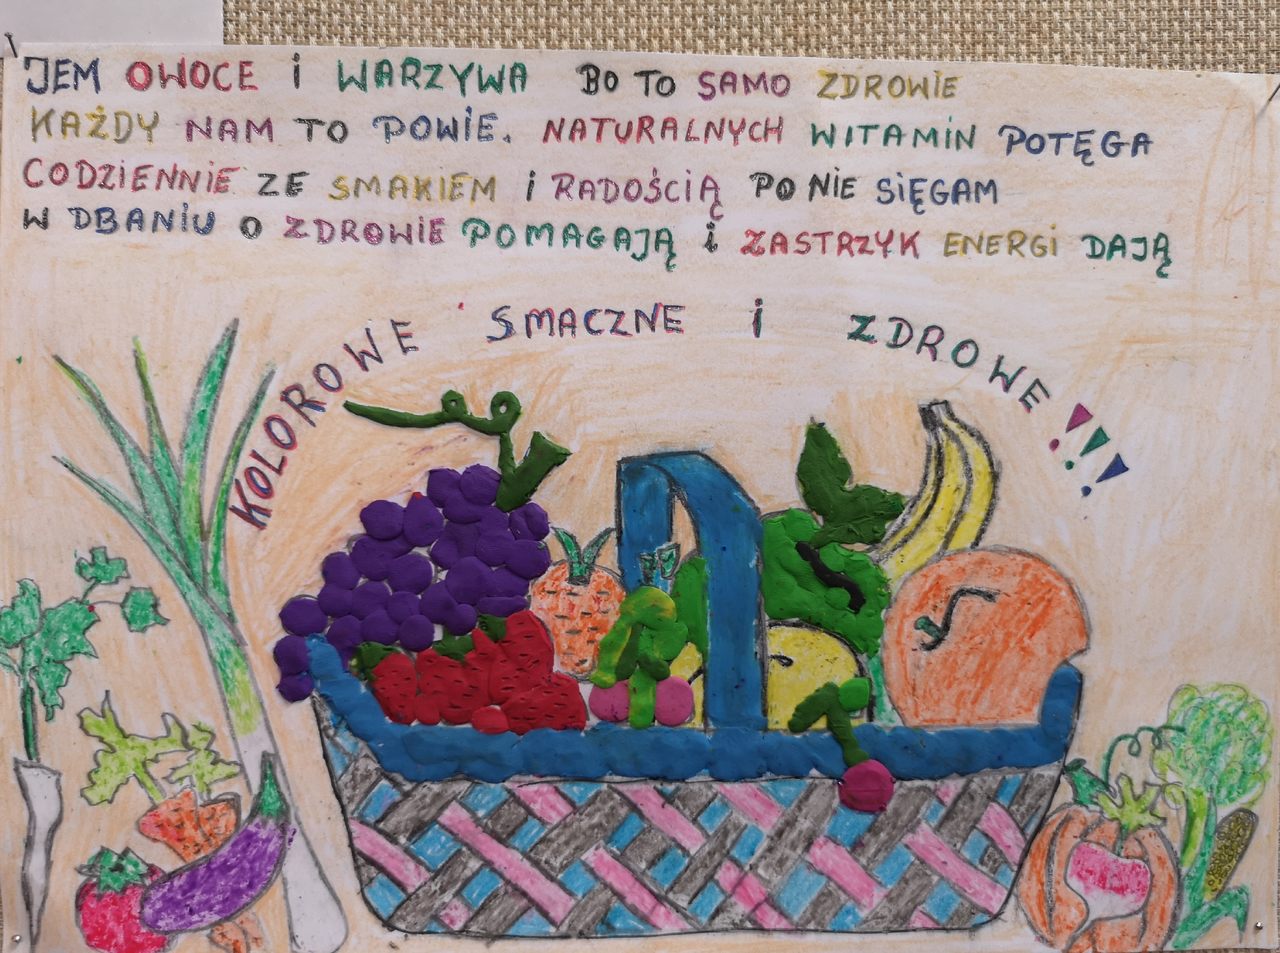 JEM OWOCE i WARZYWA BO TO SAMO ZDROWIE
KAŻDY NAM TO POWIE. NATURALNYCH WITAMIN POTĘGA
CODZIENNIE ZE SMAKIEM i RADOŚCIĄ PO NIE SIĘGAM
W DBANIU O ZDROWIE POMAGAJĄ i ZASTRZYK ENERGI DAJĄ
KOLOROWE SMACZNE I ZDROWE!!!